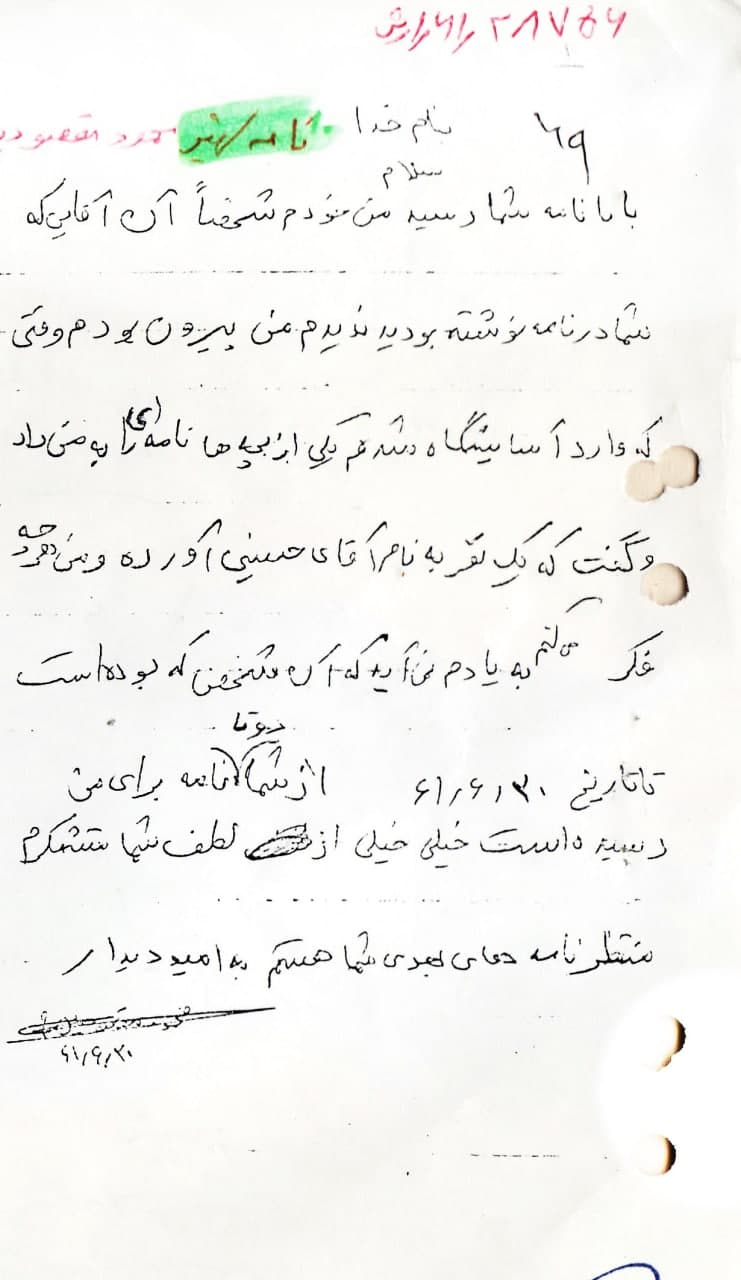 ۲۸۷۵۶
۶۹
بنام خدا
نامه شهید محمود مقصودی
سلام
بابا نامه شما رسید من خودم شخصاً آن آقایی که
شما در نامه نوشته بودید ندیدم من بیرون بودم وقتی
که وارد آسایشگاه شدم یکی از بچه ها نامه (ی) را به من داد
و گفت که یک نفر به نام آقای حسینی آورده و من هر چه
فکر می کنم به یادم نمی آید که آن شخص که بوده است
تا تاریخ ۶۱/۶/۳۰ از شما دوتا نامه برای من
رسیده است خیلی خیلی از لطف شما متشکرم
منتظر نامه های بعدی شما هستم به امید دیدار
۶۱/۶/۳۰